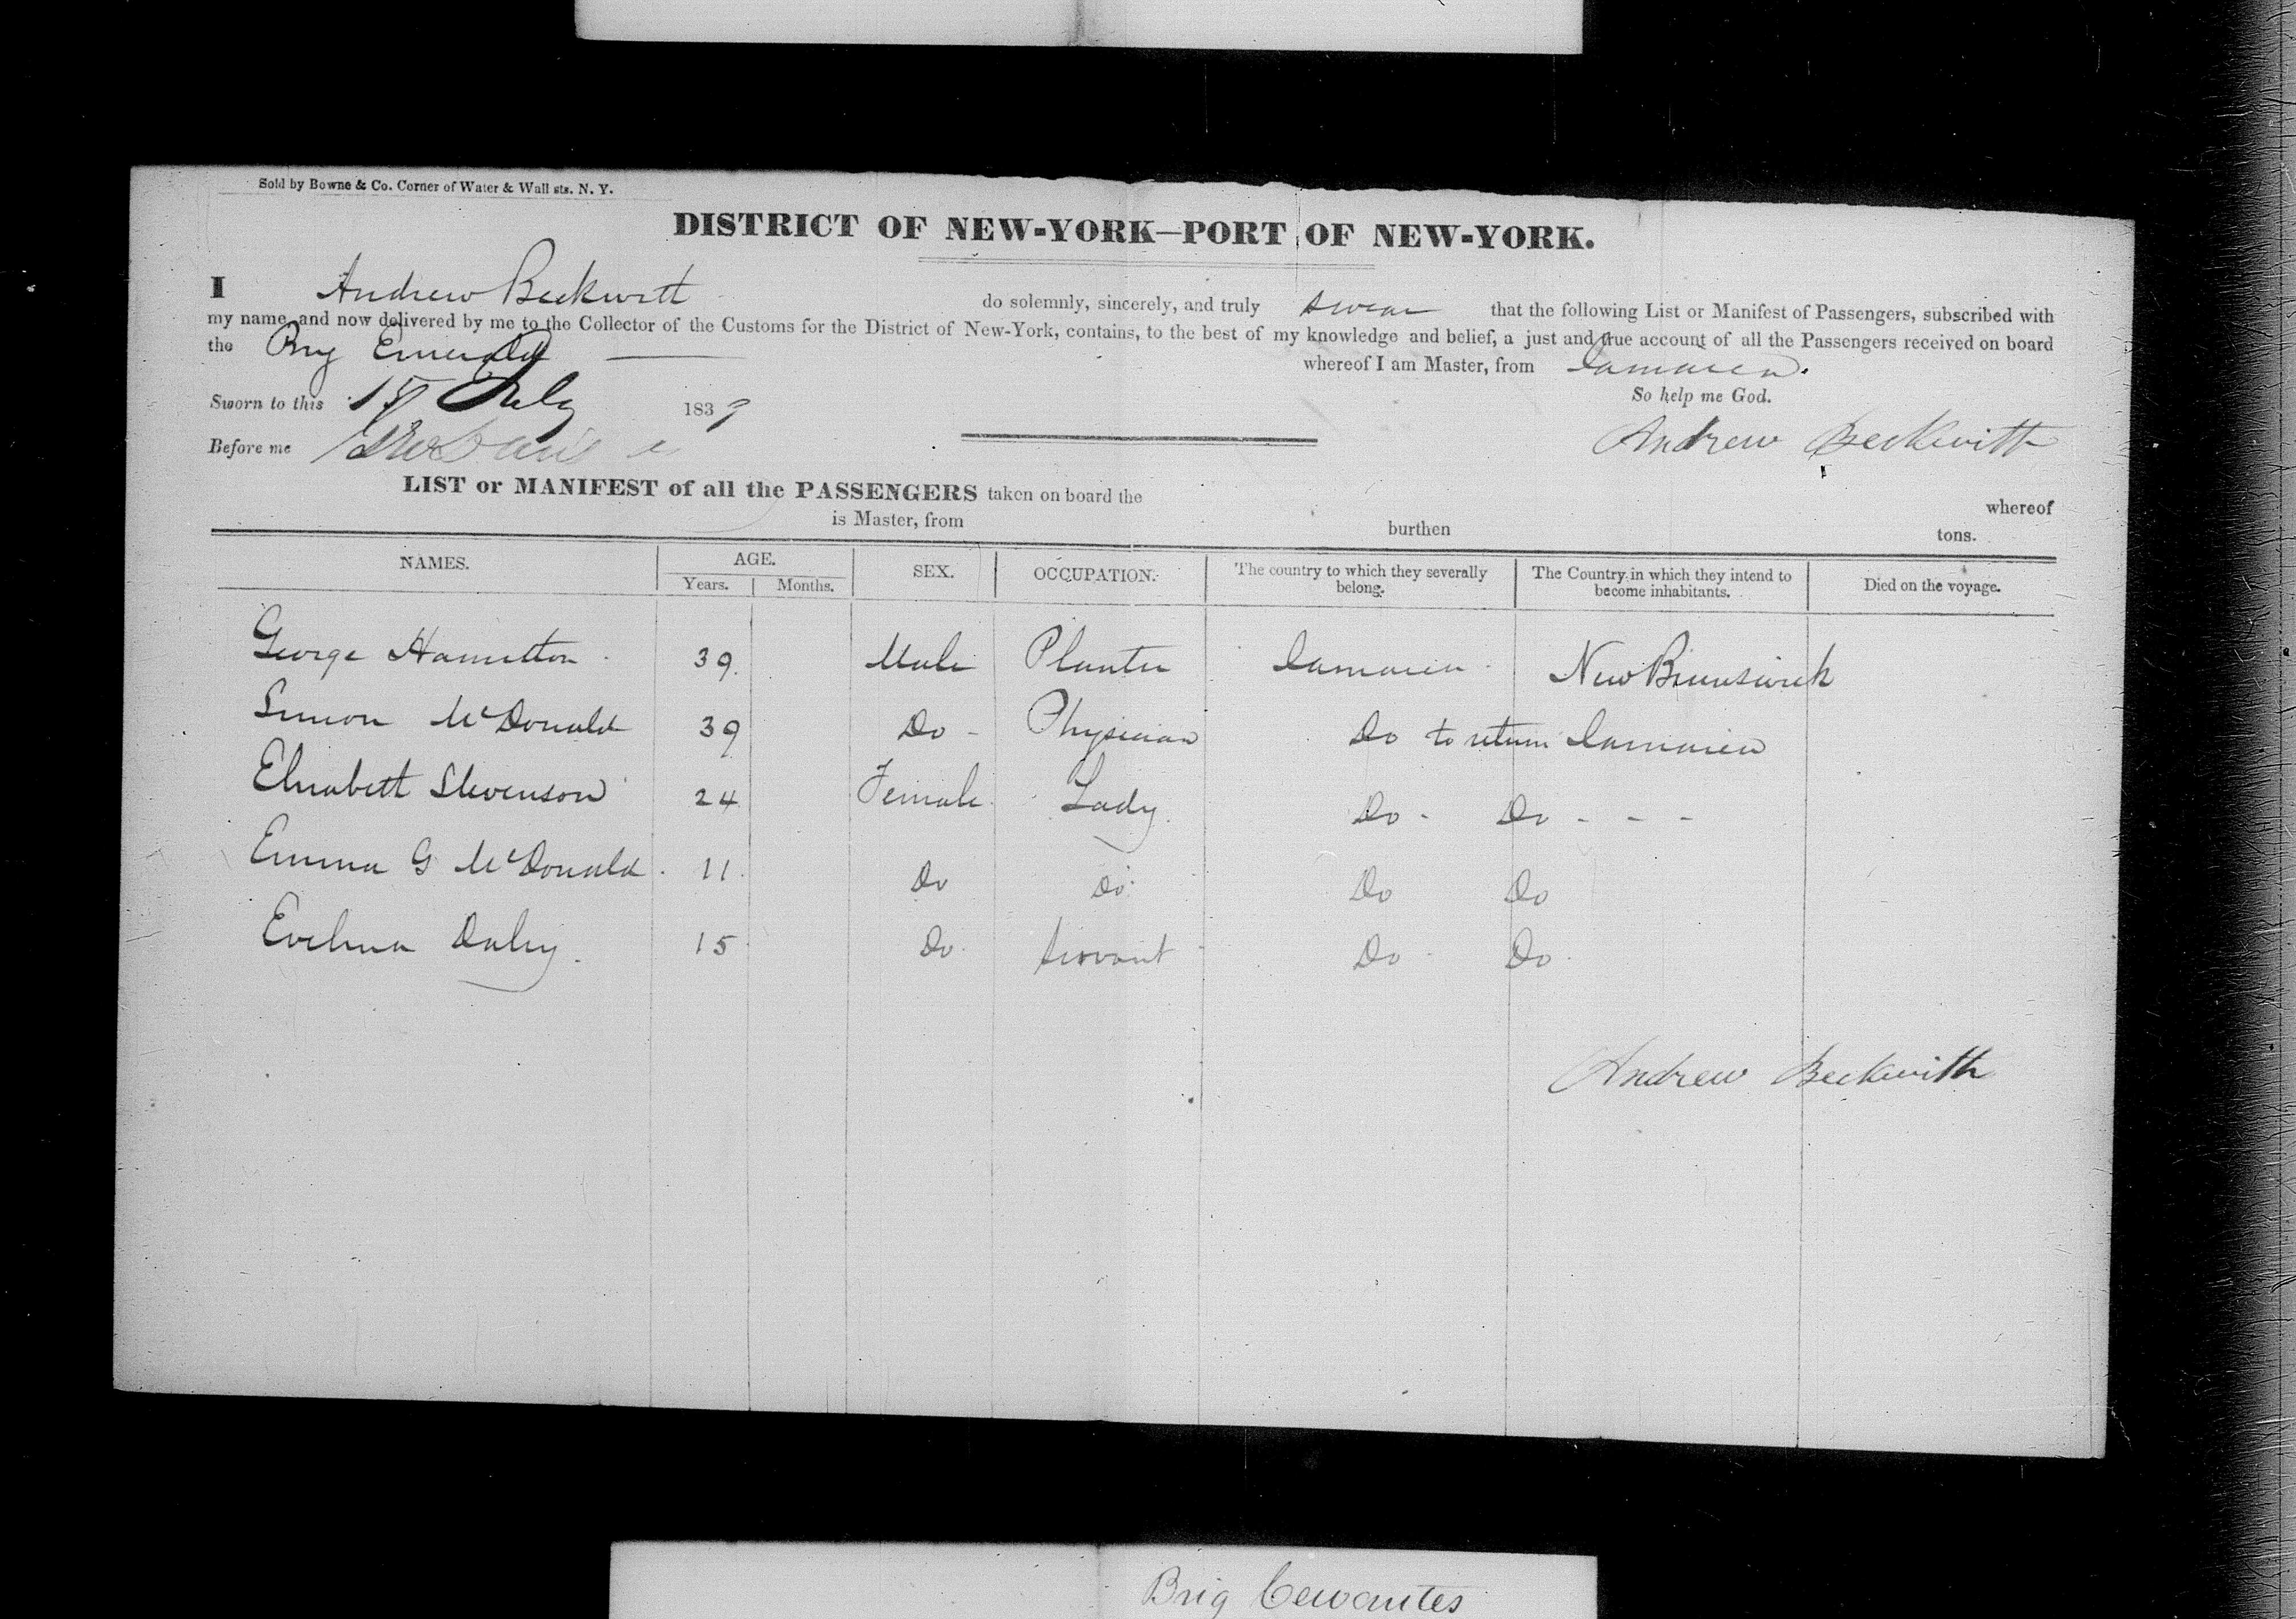 Sold by Bowne & Co. Corner of Water & Wall sts. N. Y.
DISTRICT OF NEW-YORK—PORT OF NEW-YORK.
I Andrew Beckwith do solemnly, sincerely, and truly swear that the following List or Manifest of Passengers, subscribed with
my name, and now delivered by me to the Collector of the Customs for the District of New-York, contains, to the best of my knowledge and belief, a just and true account of all the Passengers received on board
the Brig Emerald whereof I am Master, from Jamaica.
So help me God.
Sworn to this July 1839
Andrew Beckwith
Before me
LIST or MANIFEST of all the PASSENGERS taken on board the whereof
is Master, from burthen tons.
NAMES. AGE. SEX. OCCUPATION. The country to which they severally belong. The Country in which they intend to become inhabitants. Died on the voyage.
Years. Months.
George Hamilton 39 Male Planter Jamaica New Brunswick
Simon McDonald 39 Do - Physician Do to return Jamaica
Elizabeth Stevenson 24 Female Lady Do - Do - - -
Emma G McDonald 11 Do Do Do Do
Evelina Daley 15 Do Servant Do Do
Andrew Beckwith
Brig Cervantes